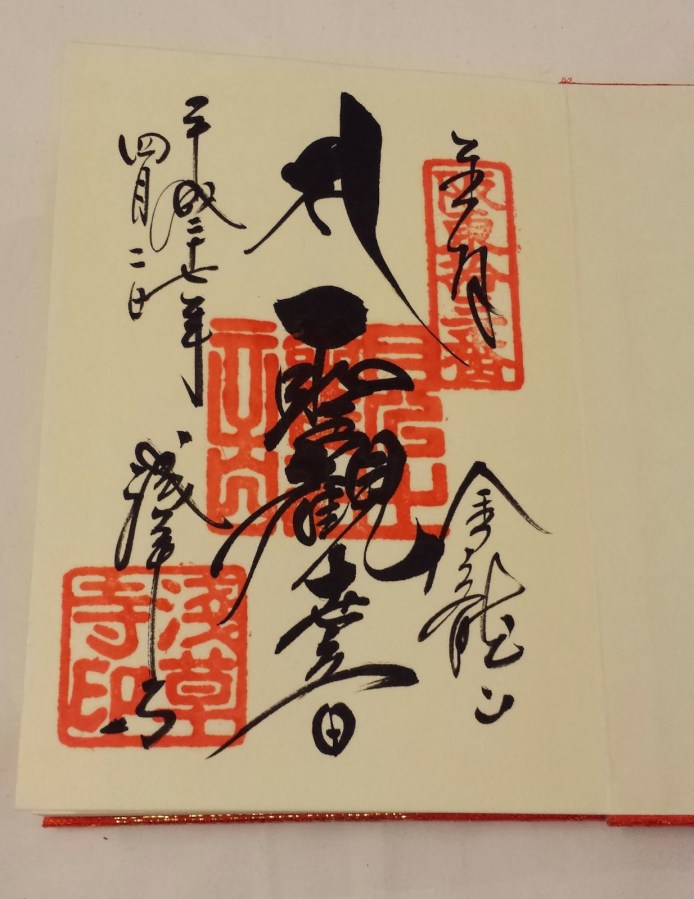 奉拝
坂東拾三番
金龍山
聖觀世音
平成二十七年
四月二日
浅草寺
淺草寺印